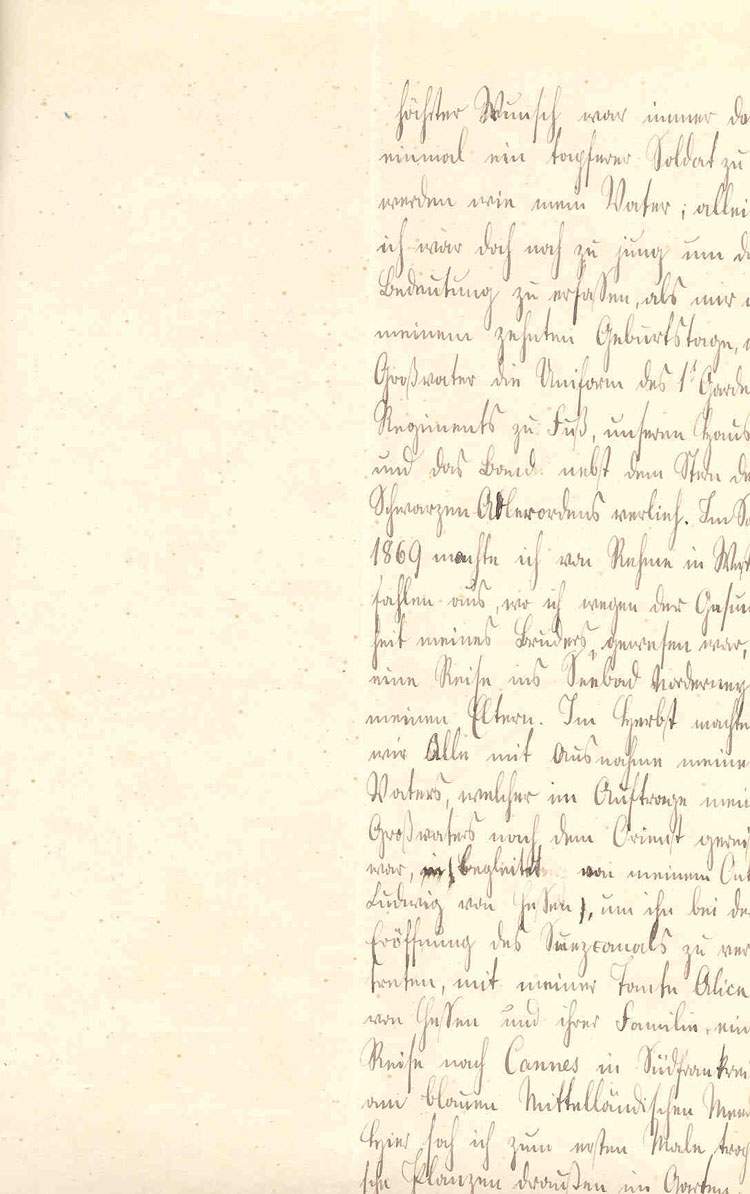 höchster Wunsch war immer da
einmal ein tapferer Soldat zu
werden wie mein Vater; allei
ich war doch noch zu jung um d
Bedeutung zu erfassen, als mir
meinem zehnten Geburtstage,
Großvater die Uniform des 1t Garde
Regiments zu Fuß, unseren Haus
und das Band nebst dem Stern de
Schwarzen Adlerordens verlieh. Im So
1869 machte ich von Rehme in West
fahlen aus, wo ich wegen der Gesun
heit meines Bruders, gewesen war,
eine Reise ins Seebad Norderney
meinen Eltern. Im Herbst machte
wir Alle mit Ausnahme meine
Vaters, welcher im Auftrage mei
Großvaters nach dem Orient gerei
war, begleitet von meinem On
Ludwig von Hessen), um ihn bei de
Eröffnung des Suezcanals zu ver
treten, mit meiner Tante Alice
von Hessen und ihrer Familie, ein
Reise nach Cannes in Südfrankrei
am blauen Mittelländischen Meer
Hier sah ich zum ersten Male trop
sche Pflanzen draußen im Garten